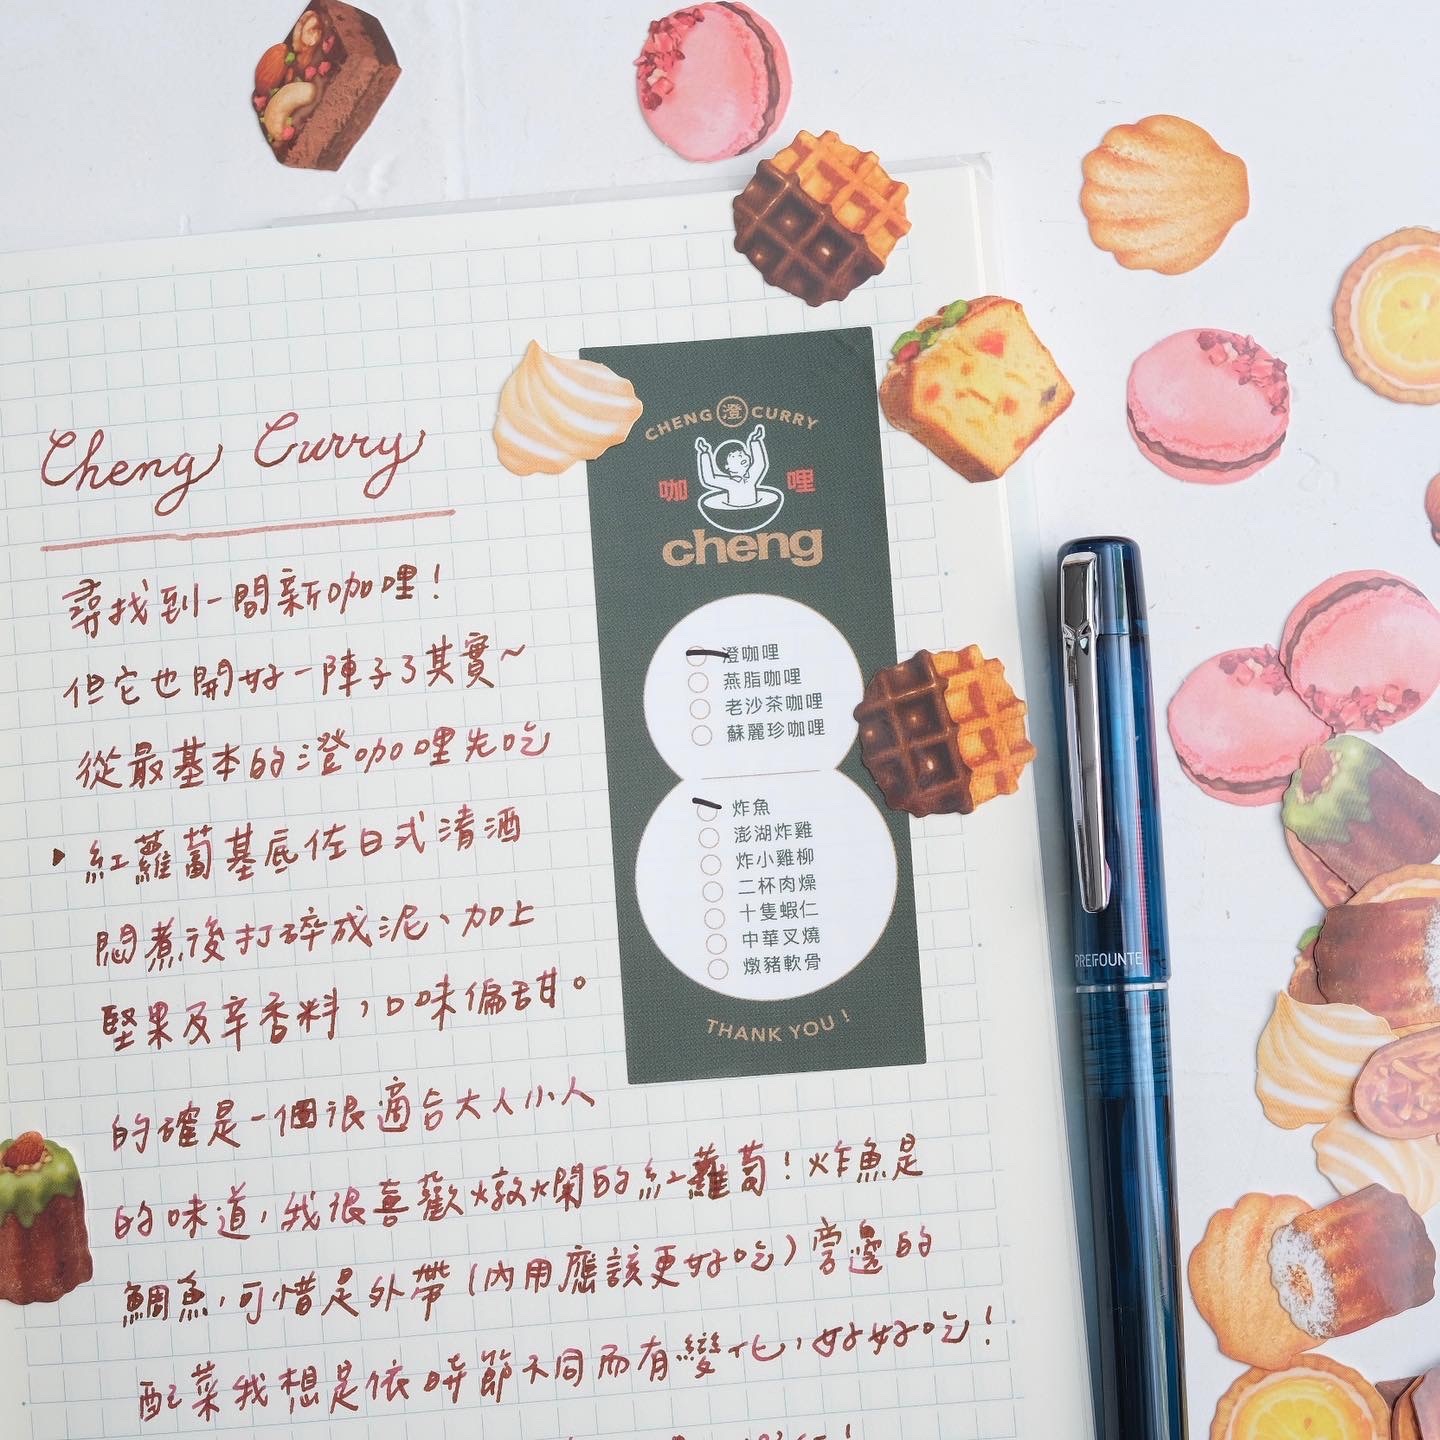 Cheng Curry
尋找到一間新咖哩！
但它也開好一陣子了其實～
從最基本的澄咖哩先吃
紅蘿蔔基底佐日式清酒
悶煮後打碎成泥、加上
堅果及辛香料，口味偏甜。
的確是一個很適合大人小人
的味道，我很喜歡燉爛的紅蘿蔔！炸魚是
鯛魚，可惜是外帶（內用應該更好吃）旁邊的
配菜我想是依時節不同而有變化，好好吃！
CHENG 澄 CURRY
咖哩
cheng
澄咖哩
燕脂咖哩
老沙茶咖哩
蘇麗珍咖哩
炸魚
澎湖炸雞
炸小雞柳
二杯肉燥
十隻蝦仁
中華叉燒
燉豬軟骨
THANK YOU !
PREFOUNTE